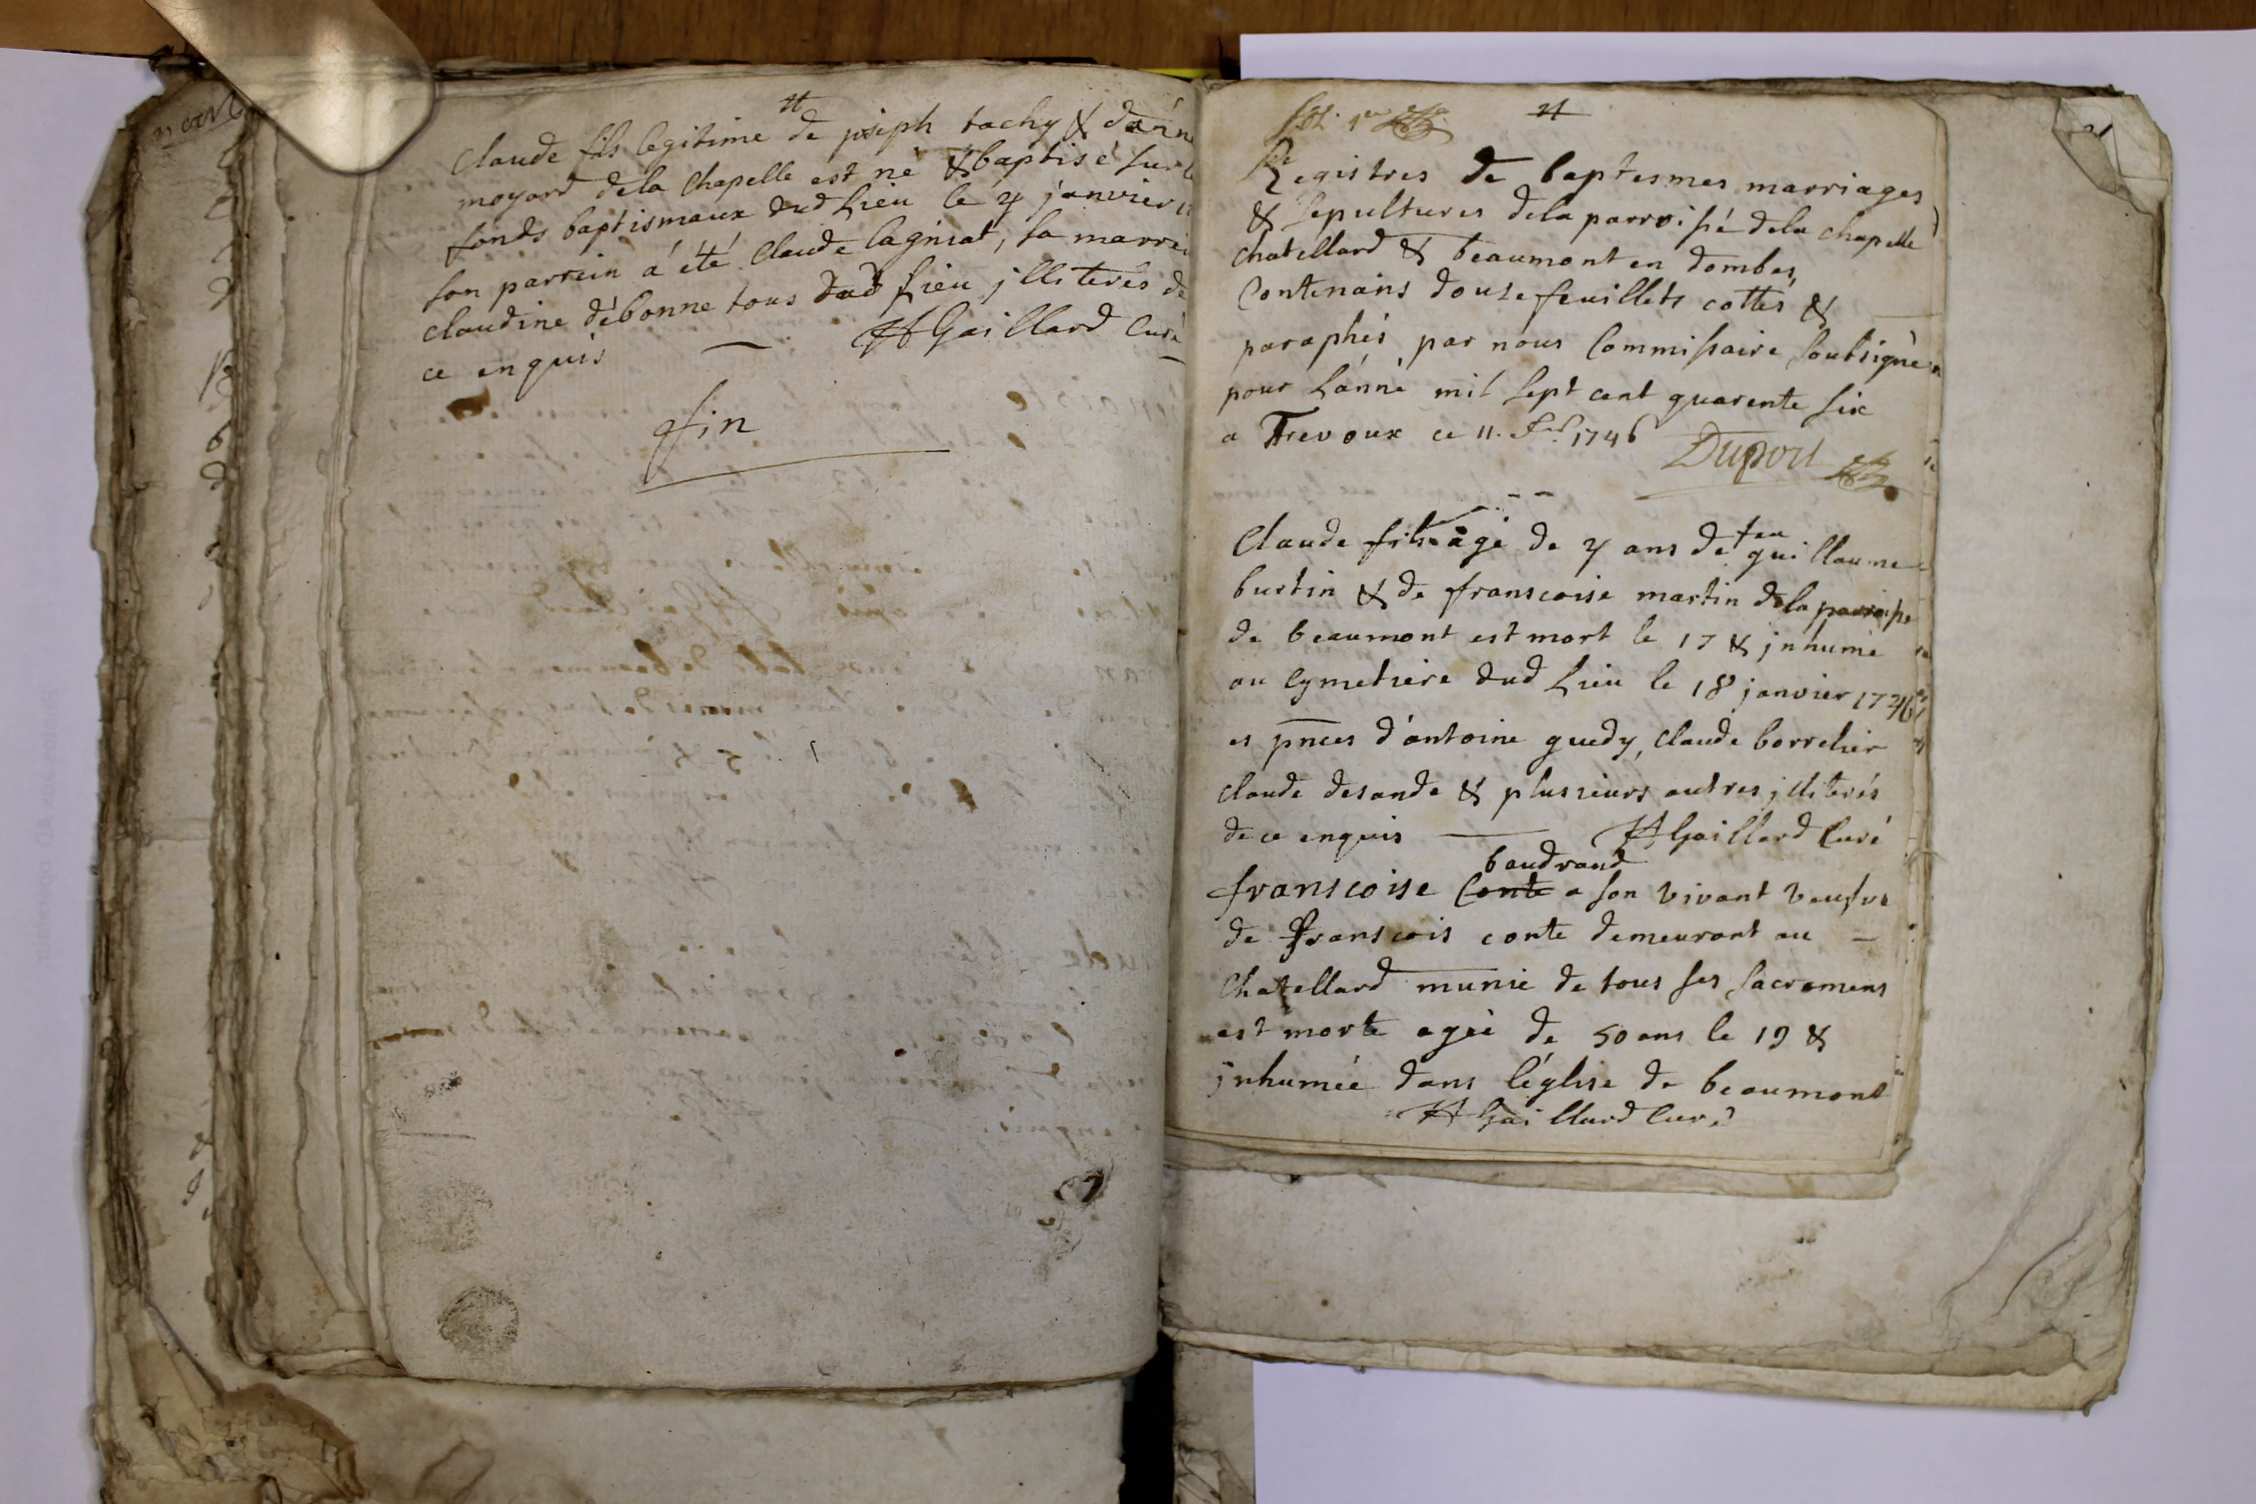 claude fils legitime de joseph tachy & d'ánn
moyard dela chapelle est né & baptisé sur l
fonds baptismaux dud lieu le 4 janvier
son parrein a été claude lagniat, sa marrei
claudine débonne tous dud lieu jlliterés de
ce enquis HGaillard curé
fin
fol. 1er
Registres de baptesmes marriages
& sepultures dela parroisse dela chapelle
chatellard & beaumont en dombes
Contenans douse feuillets cottés &
paraphés par nous Commissaire soubsigné
pour l'anné mil sept cent quarente six
a Trevoux ce 11. 1746 Duport
feu
Claude fils agé de 4 ans de guillaume
burtin & de franscoise martin dela parroisse
de beaumont est mort le 17 & jnhumé
au cymetiere dud lieu le 18 janvier 1746
es pnces d'antoine guedy, claude borrelier
claude desande & plussieurs autres jlliterés
de ce enquis HGaillard Curé
baudrand
franscoise Conte a son vivant veufve
de franscois conte demeurant au
Chatellard munie de tous ses sacremens
est morte ageé de 50 ans le 19 &
jnhumée dans l'église de beaumont
HGaillard Curé